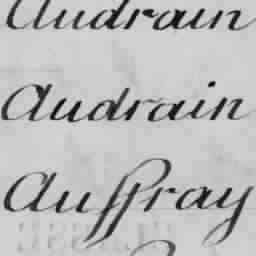 Audrain
Audrain
Auffray